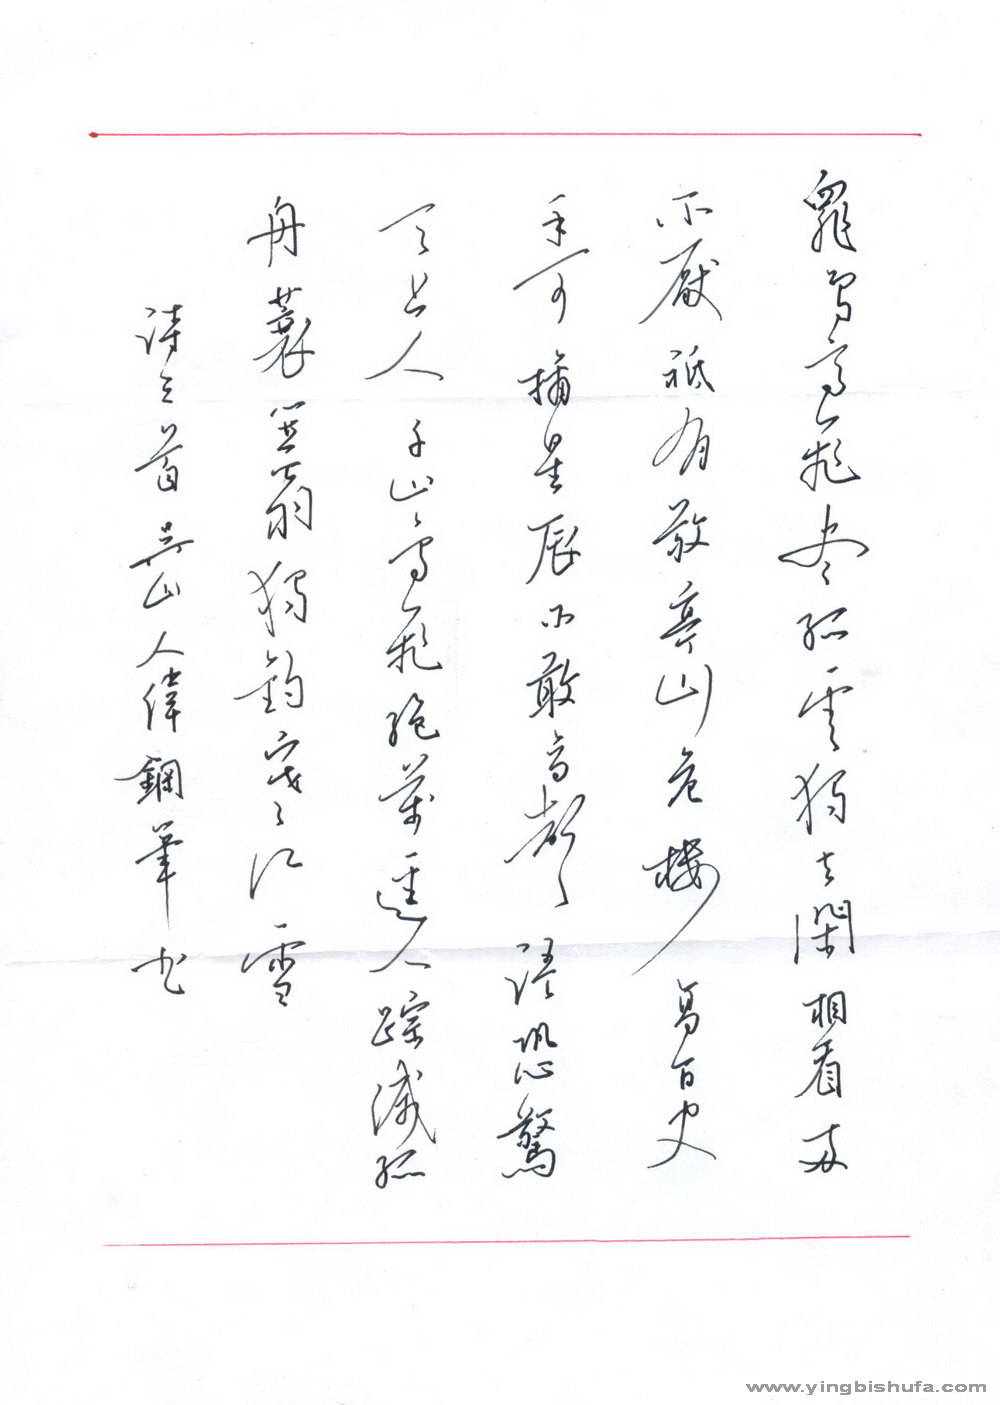 眾鳥高飛盡孤雲獨去閑相看兩
不厭祗有敬亭山危樓高百尺
手可摘星辰不敢高聲語恐驚
天上人千山鳥飛絕萬逕人踪滅孤
舟蓑笠翁獨釣寒江雪
詩三首山人偉鋼筆书
www.yingbishufa.com